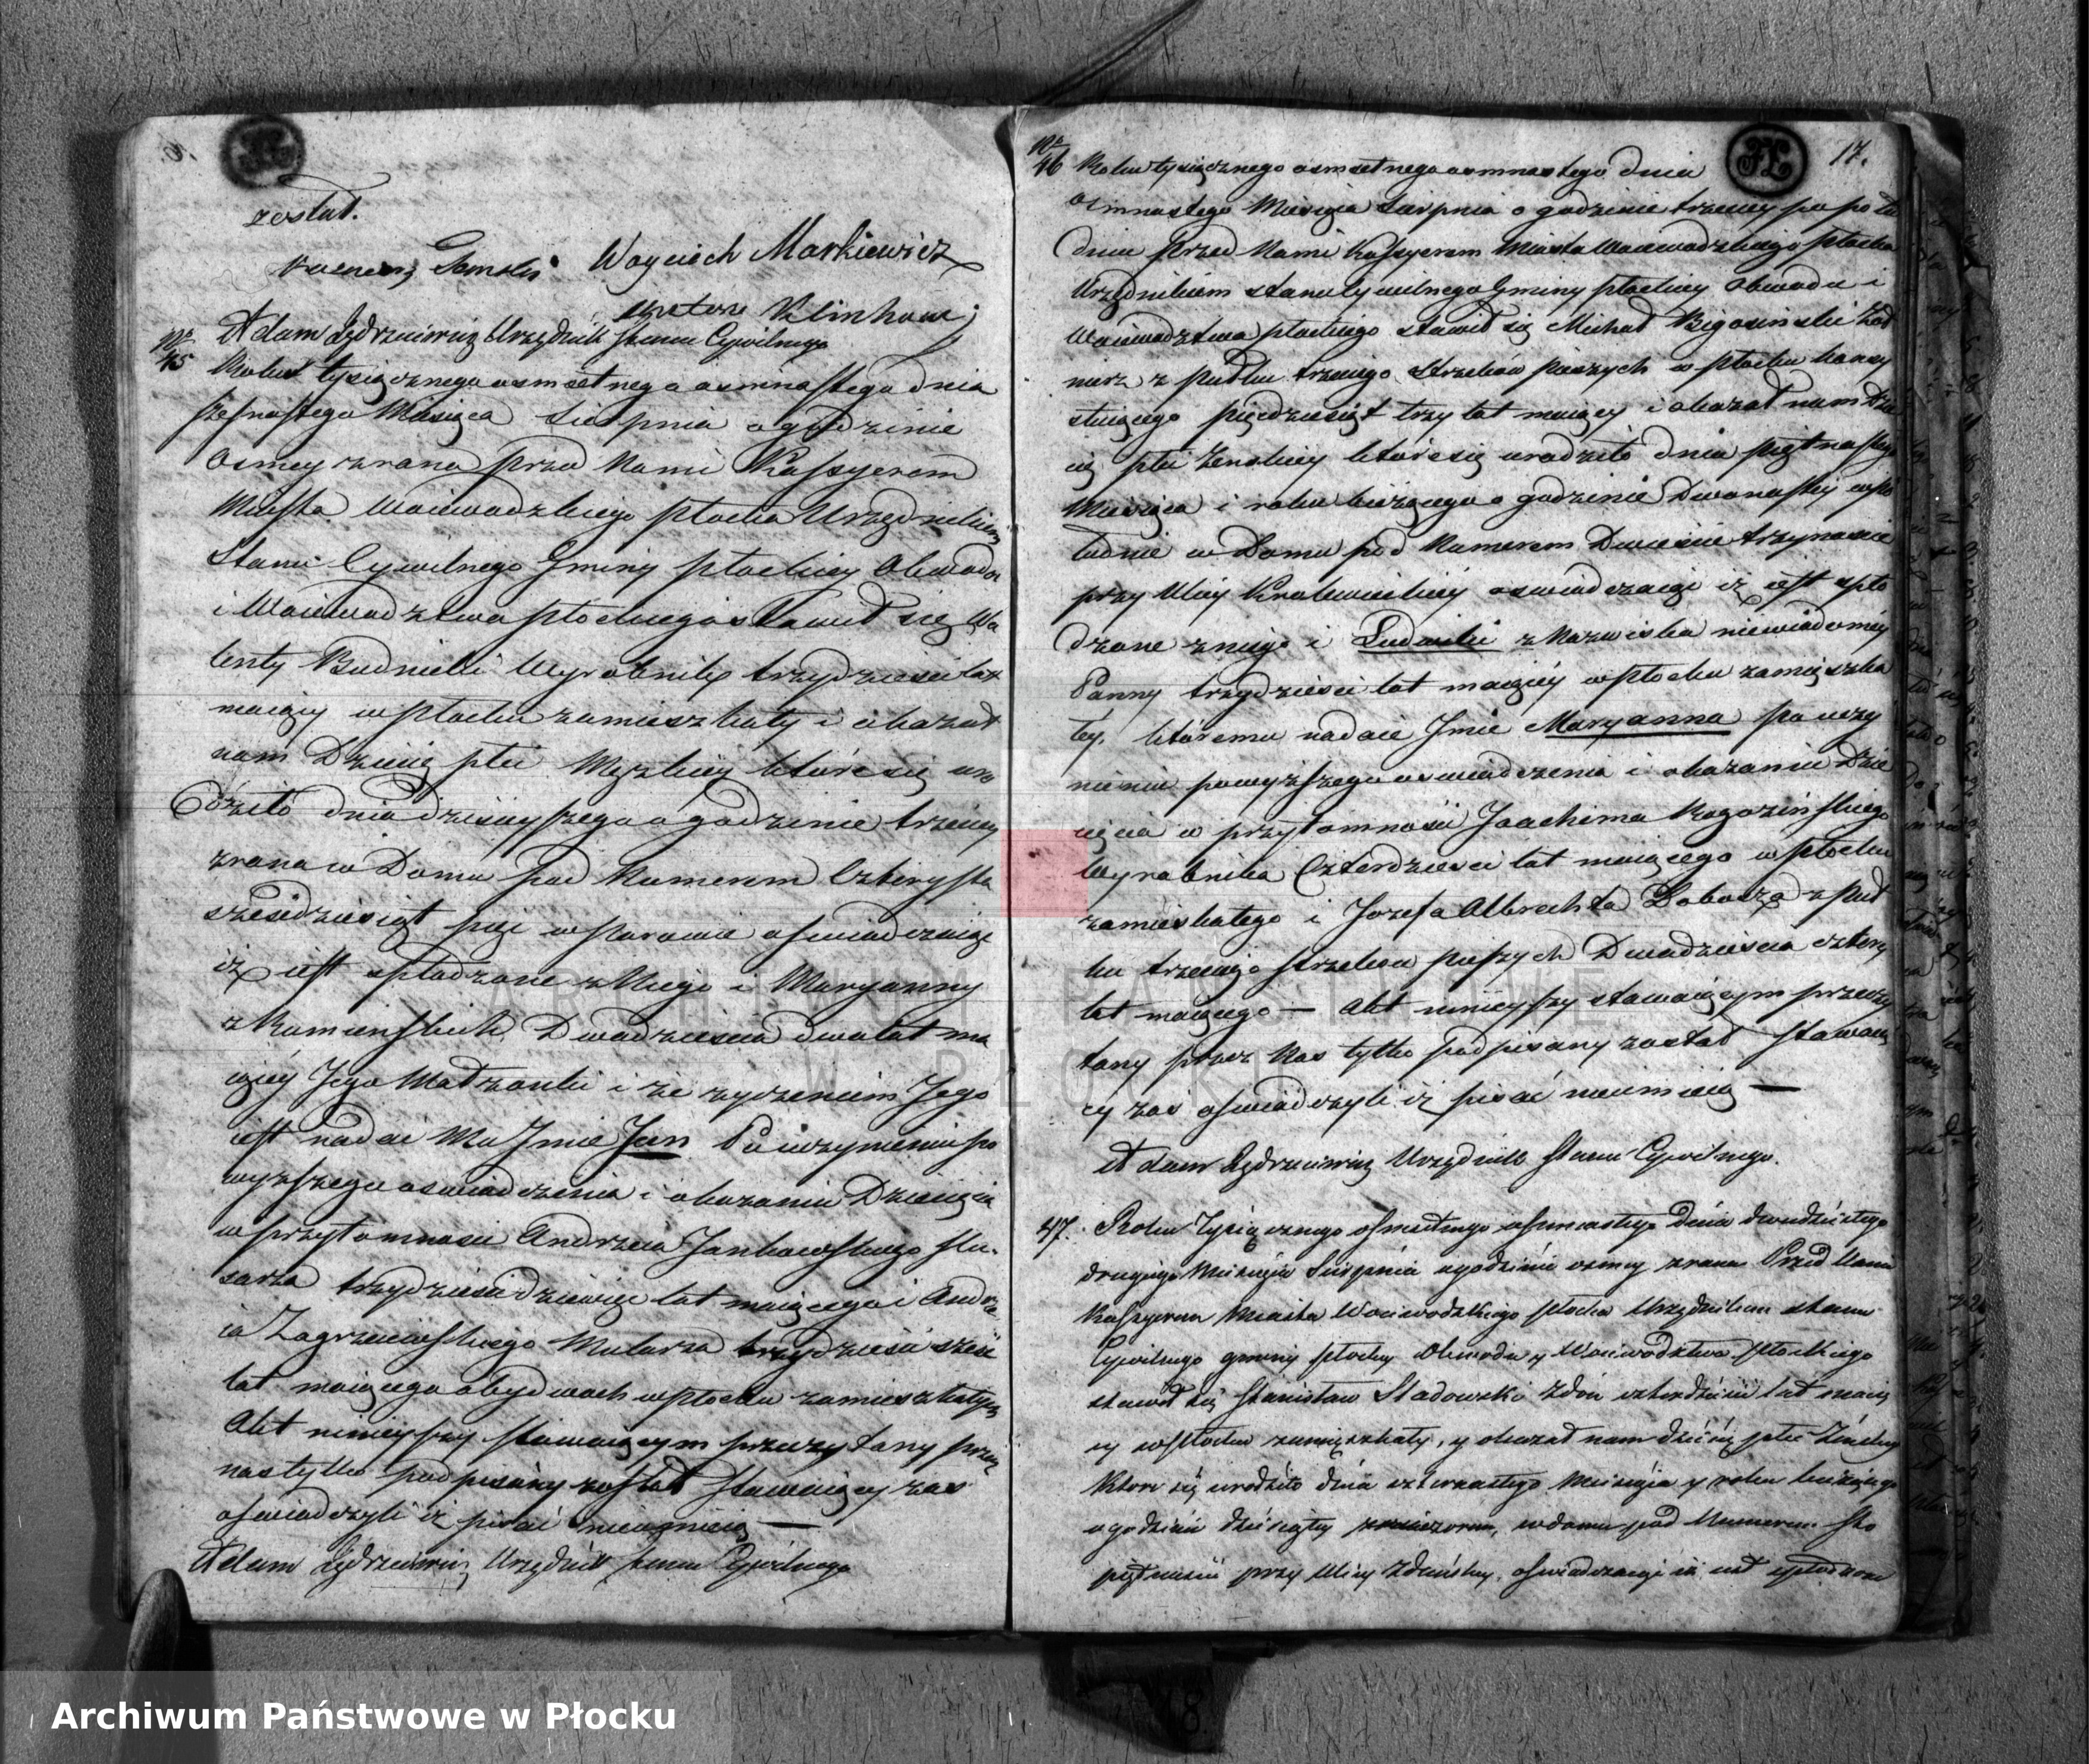 został.
Wawrzeniec Wojciech Markiewicz
Klinkow
Adam Jędrzeiewicz Urzędnik Stanu Cywilnego
No 45
Roku tysiącznego osmsetnego osmnastego dnia
szesnastego Miesiąca Sierpnia o godzinie
osmey zrana przed Nami Kassyerem
Miasta Woiewodzkiego Płocka Urzędnikiem
Stanu Cywilnego Gminy Płockiey Obwodu
i Woiewodztwa Płockiego stawił się Wa
lenty Budnicki Wyrobnik trzydziesci lat
maiący w Płocku zamieszkały i okazał
nam Dziecię płci Męzkiey które się uro
dziło dnia dzisieyszego o godzinie trzeciey
zrana w Domu pod Numerem Czterysta
szescdziesiąt pięć w Parowie oswiadczaiąc
iż iest spłodzone z Niego i Maryanny
z Kamienskich Dwadziescia dwa lat ma
iącey Jego Małżonki i że życzeniem Jego
iest nadać Mu Jmie Jan Po uczynieniu po
wyższego oswiadczenia i okazaniu Dziecięcia
w przytomnosci Andrzeia Jankowskiego slu-
sarza trzydziesci dziewięć lat maiącego i Andrze
ia Zagrzewskiego Mularza trzydziesci szesc
lat maiącego obydwoch w Płocku zamieszkałych
Akt ninieyszy stawaiącym przeczytany przez
nas tylko podpisany został stawaiący zas
oswiadczyli iż pisać nieumieią —
Adam Jędrzeiewicz Urzędnik Stanu Cywilnego
17.
No 46
Roku tysiącznego osmsetnego osmnastego dnia
osmnastego Miesiąca Sierpnia o godzinie trzeciey po połu
dniu przed Nami Kassyerem Miasta Woiewodzkiego Płocka
Urzędnikiem Stanu Cywilnego Gminy Płockiey Obwodu i
Woiewodztwa Płockiego stawił się Michał Bigosiński Żoł
nierz z Pułku trzeciego Strzelców Pieszych w Płocku konsy
stuiącego pięcdziesiąt trzy lat maiący i okazał nam Dzie
cię płci Żenskiey które się urodziło dnia piętnastego
Miesiąca i roku bieżącego o godzinie Dwonastey w po
łudnie w Domu pod Numerem Dwiescie trzynascie
przy Ulicy oswiadczaiąc iż iest spło
dzone z niego i Ludwiki z Nazwiska niewiadomey
Panny trzydziesci lat maiącey w Płocku zamięszka
łey. któremu nadaie Jmie Maryanna po uczy
nieniu powyższego oswiadczenia i okazaniu Dzie
cięcia w przytomnosci Joachima Rogozińskiego
Wyrobnika Czterdziesci lat maiącego w Płocku
zamieszkałego i Jozefa Albrechta Dobosza z Puł
ku trzeciego strzelcow pieszych Dwadziescia cztery
lat maiącego — Akt ninieyszy stawaiącym przeczy
tany przez Nas tylko podpisany został stawaią
cy zas oswiadczyli iż pisać nieumieią —
Adam Jędrzeiewicz Urzędnik Stanu Cywilnego.
47.
Roku Tysiącznego osmsetnego osmnastego Dnia dwudziestego
drugiego Miesiąca Sierpnia o godzinie osmey zrana Przed Nami
Kassyerem Miasta Woiewodzkiego Płocka Urzędnikiem Stanu
Cywilnego gminy Płockiey Obwodu y Woiewodztwa Płockiego
stawił się Stanisław Sladowski Zdun czterdziesci lat maią
cy w Płocku zamięszkały, y okazał nam dziecię płci Żenskiey
Ktore się urodziło dnia czternastego Miesiąca y roku bieżącego
o godzinie dziesiątey wieczorem, w domu pod Numerem sto
piętnascie przy Ulicy Zduńskiey, oswiadczaiąc iż iest spłodzone
ARCHIWUM PAŃSTWOWE
W PŁOCKU
Archiwum Państwowe w Płocku